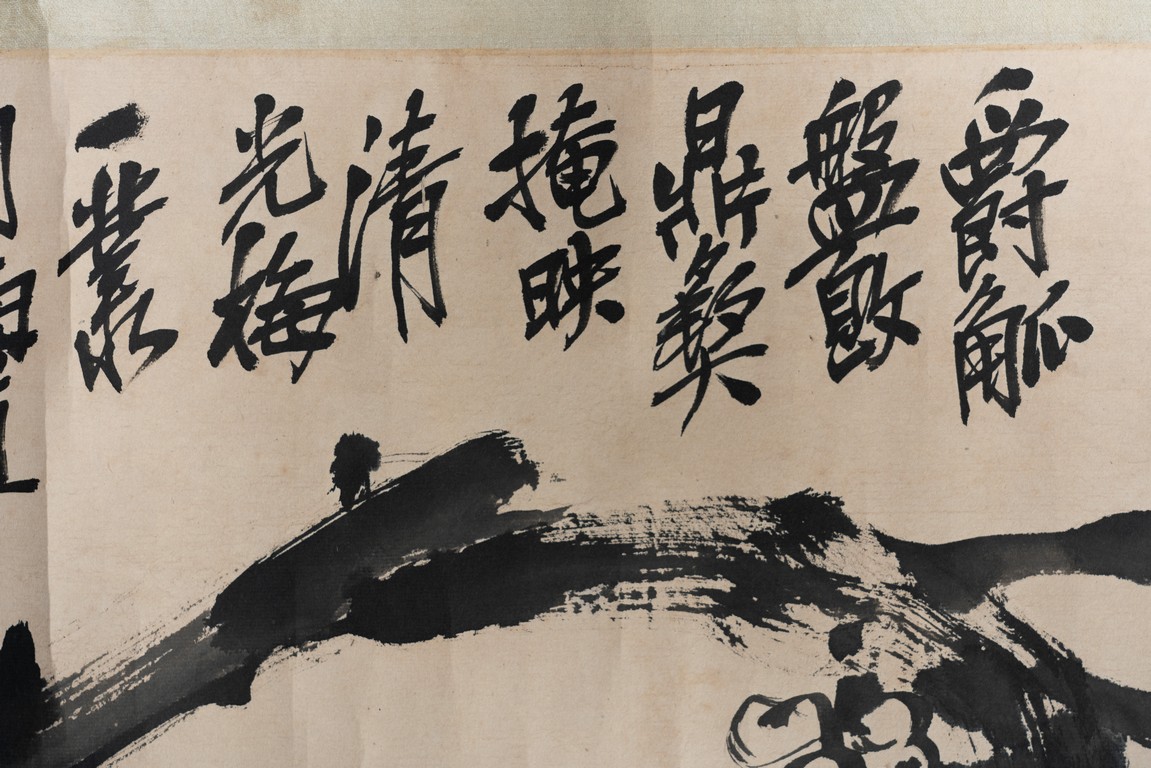 爵觚
盤敦
鼎彝
掩映
清
光梅
一叢